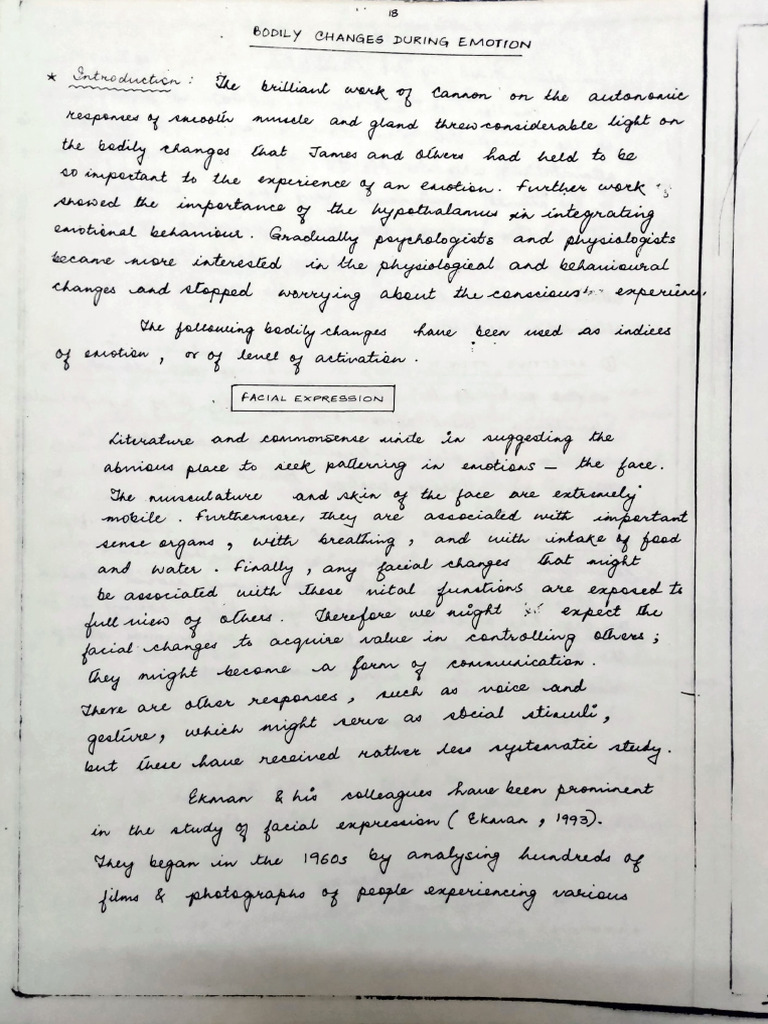 18
BODILY CHANGES DURING EMOTION
* Introduction : The brilliant work of Cannon on the autonomic
responses of smooth muscle and gland threw considerable light on
the bodily changes that James and others had held to be
so important to the experience of an emotion. Further work
showed the importance of the hypothalamus in integrating
emotional behaviour. Gradually psychologists and physiologists
became more interested in the physiological and behavioural
changes and stopped worrying about the conscious experience.
The following bodily changes have been used as indices
of emotion, or of level of activation.
FACIAL EXPRESSION
Literature and commonsense unite in suggesting the
obvious place to seek patterning in emotions — the face.
The musculature and skin of the face are extremely
mobile. Furthermore, they are associated with important
sense organs, with breathing, and with intake of food
and water. Finally, any facial changes that might
be associated with these vital functions are exposed to
full view of others. Therefore we might expect the
facial changes to acquire value in controlling others;
they might become a form of communication.
There are other responses, such as voice and
gesture, which might serve as social stimuli,
but these have received rather less systematic study.
Ekman & his colleagues have been prominent
in the study of facial expression (Ekman, 1993).
They began in the 1960s by analysing hundreds of
films & photographs of people experiencing various